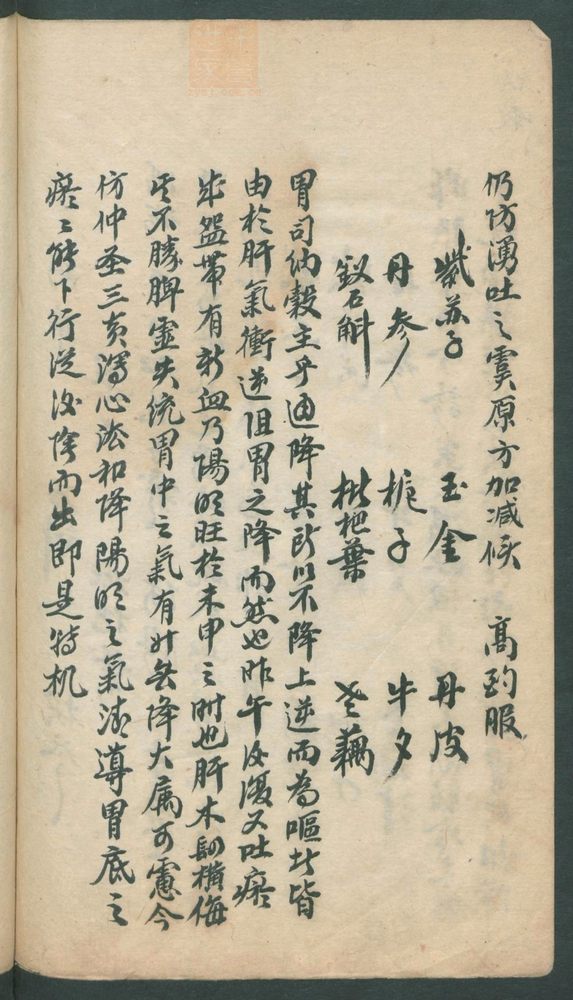 仍防湧吐之虞原方加减候　高酌服
紫苏子　玉金　丹皮
丹参　栀子　牛夕
釵石斛　枇杷葉　老藕
胃司纳穀主乎通降其所以不降上逆而為嘔者皆
由於肝氣衝逆阻胃之降而然也昨午後復又吐瘀
半盆带有新血乃陽明旺於未申之時也肝木橫侮
土不勝脾虚失統胃中之氣有升無降大属可慮今
仿仲圣三黄瀉心法和降陽明之氣清導胃底之
瘀瘀能下行從後陰而出即是轉机